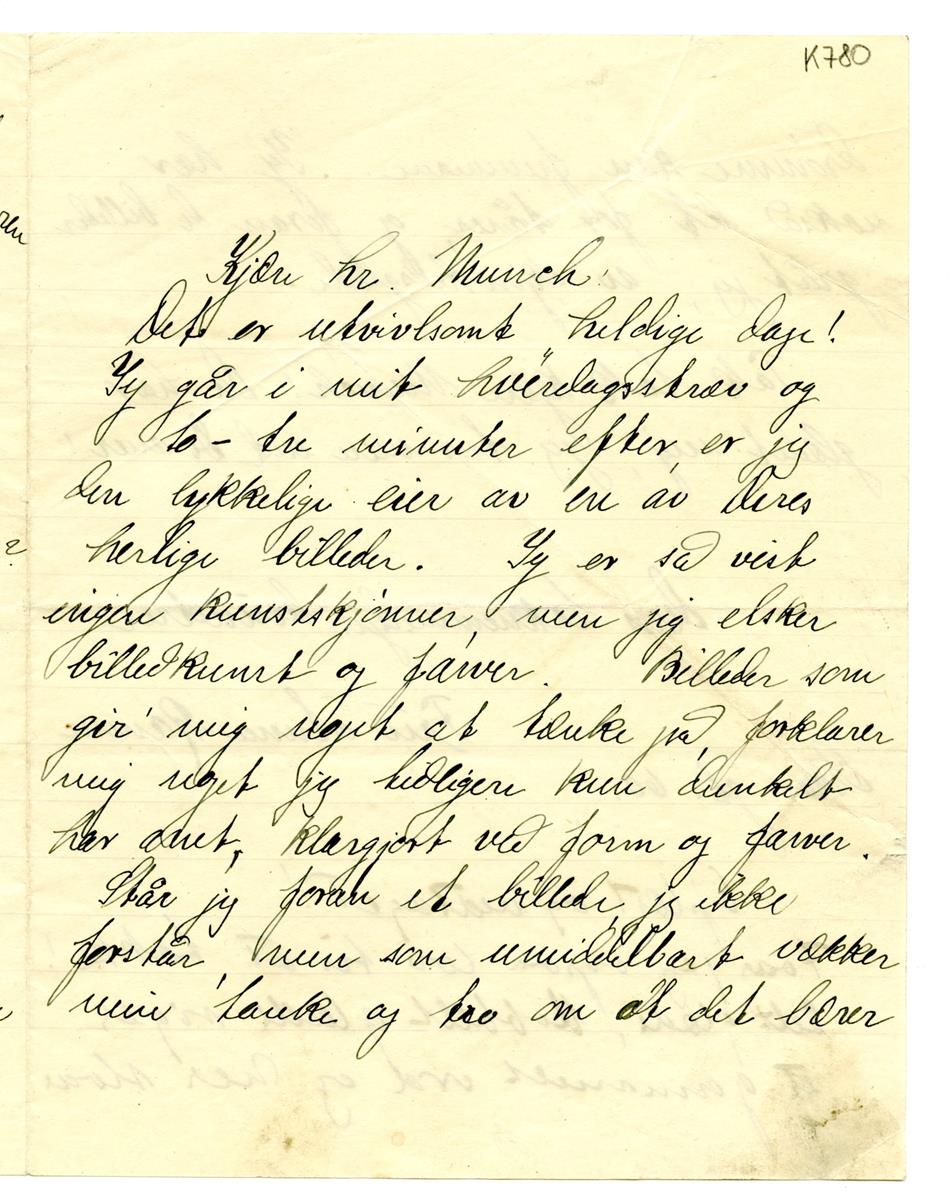 K780
Kjære hr. Munch!
Det er utvivlsomt heldige dage!
Jeg går i mit hverdagsstræv og
to-tre minuter efter, er jeg
den lykkelige eier av en av Deres
herlige billeder. Jeg er så vist
ingen kunstskjønner, men jeg elsker
billedkunst og farver. Billeder som
gir mig noget at tænke på, forklarer
mig noget jeg tidligere kun dunkelt
har anet, klargjort ved form og farver.
Står jeg foran et billede, jeg ikke
forstår, men som umiddelbart vækker
min tanke og tro om at det bærer
ren
?